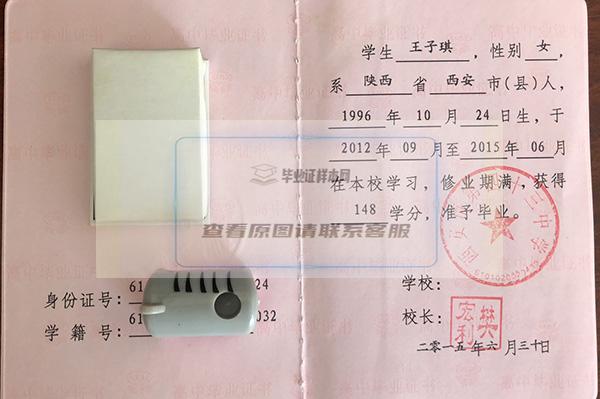 学生 王子琪 ，性别 女 ，
系 陕西 省 西安 市(县)人，
1996 年 10 月 24 日生，于
2012 年 09 月至 2015 年 06 月
在本校学习，修业期满，获得
148 学分，准予毕业。
学校：
校长： 樊宏利
二〇一五年六月三十日
身份证号： 61 24
学籍号： 61 032
毕业证样本网
查看原图请联系客服